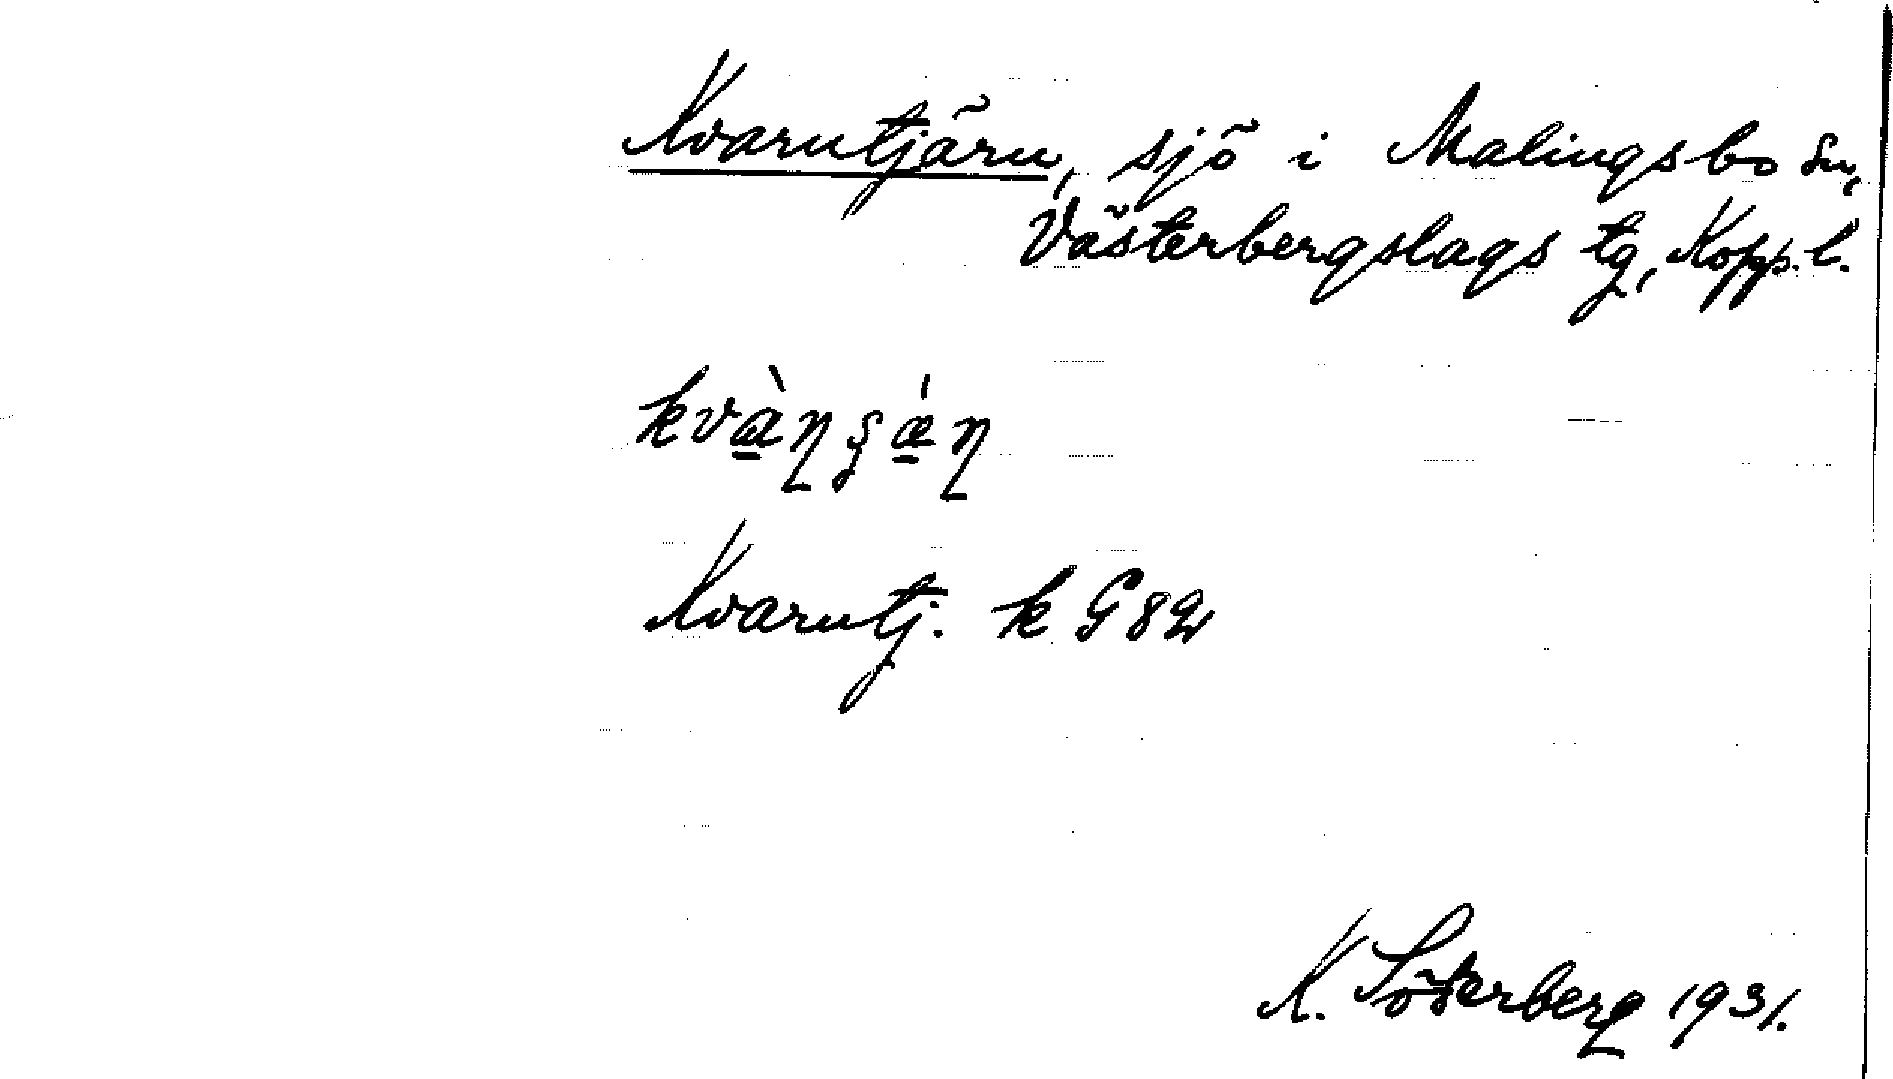 Kvarntjärn, sjö i Malingsbo sn,
Västerbergslags tg, Kopp. l.
kvæ̠̀ɳʂǽ̠ɳ
Kvarntj. k G 82
K. Söderberg 1931.